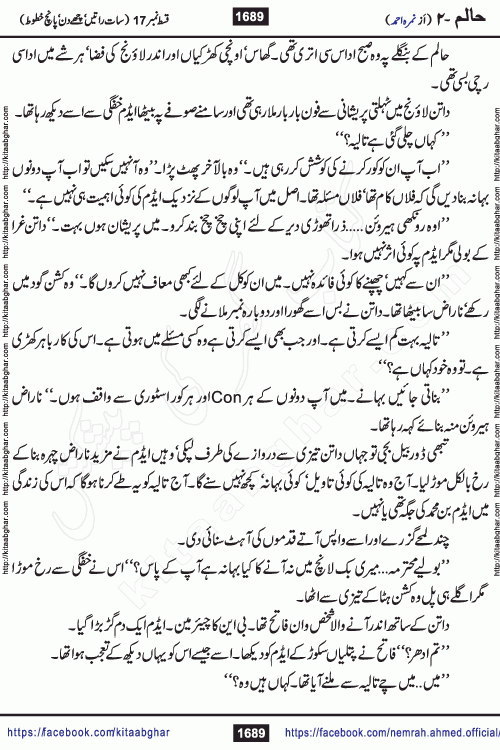 حالم -۲ (از نمرہ احمد)
1689
قسط نمبر 17 (سات راتیں چھے دن پانچ خطوط)
حالم کے بنگلے پہ وہ صبح اداس سی اتری تھی۔ گھاس، اونچی کھڑکیاں اور اندر لاؤنج کی فضا، ہر شے میں اداسی
رچی بسی تھی۔
داتن لاؤنج میں ٹہلتی پریشانی سے فون بار بار ملا رہی تھی اور سامنے صوفے پہ بیٹھا ایڈم خفگی سے اسے دیکھ رہا تھا۔
’’کہاں چلی گئی ہے تالیہ؟‘‘
’’اب آپ ان کو کور کرنے کی کوشش کر رہی ہیں۔‘‘ وہ بالآخر پھٹ پڑا۔ ’’وہ آ نہیں سکیں تو اب آپ دونوں
بہانہ بنا دیں گی کہ فلاں کام تھا، فلاں مسئلہ تھا۔ اصل میں آپ لوگوں کے نزدیک ایڈم کی کوئی اہمیت ہی نہیں ہے۔‘‘
’’اوہ روٹھی ہیروئن..... ذرا تھوڑی دیر کے لئے اپنی چخ چخ بند کرو۔ میں پریشان ہوں بہت۔‘‘ داتن غرا
کے بولی مگر ایڈم پہ کوئی اثر نہیں ہوا۔
’’ان سے کہیں، چھپنے کا کوئی فائدہ نہیں۔ میں ان کو کل کے لئے کبھی معاف نہیں کروں گا۔‘‘ وہ کشن گود میں
رکھے، ناراض سا بیٹھا تھا۔ داتن نے بس اسے گھورا اور دوبارہ نمبر ملانے لگی۔
’’تالیہ بہت کم ایسے کرتی ہے۔ اور جب بھی ایسے کرتی ہے وہ کسی مسئلے میں ہوتی ہے۔ اس کی کار باہر کھڑی
ہے۔ تو وہ خود کہاں ہے؟‘‘
’’بناتی جائیں بہانے۔ میں آپ دونوں کے ہر Con اور ہر کور اسٹوری سے واقف ہوں۔‘‘ ناراض
ہیروئن منہ بنائے کہہ رہا تھا۔
تبھی ڈور بیل بجی تو جہاں داتن تیزی سے دروازے کی طرف لپکی، وہیں ایڈم نے مزید ناراض چہرہ بنا کے
رخ بالکل موڑ لیا۔ آج وہ تالیہ کی کوئی تاویل، کوئی بہانہ، کچھ نہیں سنے گا۔ آج تالیہ کو یہ طے کرنا ہوگا کہ اس کی زندگی
میں ایڈم بن محمد کی جگہ تھی یا نہیں۔
چند لمحے گزرے اور اسے واپس آتے قدموں کی آہٹ سنائی دی۔
’’بولیے محترمہ... میری بک لانچ میں نہ آنے کا کیا بہانہ ہے آپ کے پاس؟‘‘ اس نے خفگی سے رخ موڑا
مگر اگلے ہی پل وہ کشن ہٹا کے تیزی سے اٹھا۔
داتن کے ساتھ اندر آنے والا شخص وان فاتح تھا۔ بی این کا چیئرمین۔ ایڈم ایک دم گڑبڑا گیا۔
’’تم ادھر؟‘‘ فاتح نے پتلیاں سکوڑ کے ایڈم کو دیکھا۔ اسے جیسے اس کو یہاں دیکھ کے تعجب ہوا تھا۔
’’میں.. میں چے تالیہ سے ملنے آیا تھا۔ کہاں ہیں وہ؟‘‘
https://facebook.com/kitaabghar
1689
https://facebook.com/nemrah.ahmed.official/
http://kitaabghar.com http://kitaabghar.com http://kitaabghar.com http://kitaabghar.com
http://kitaabghar.com http://kitaabghar.com http://kitaabghar.com http://kitaabghar.com